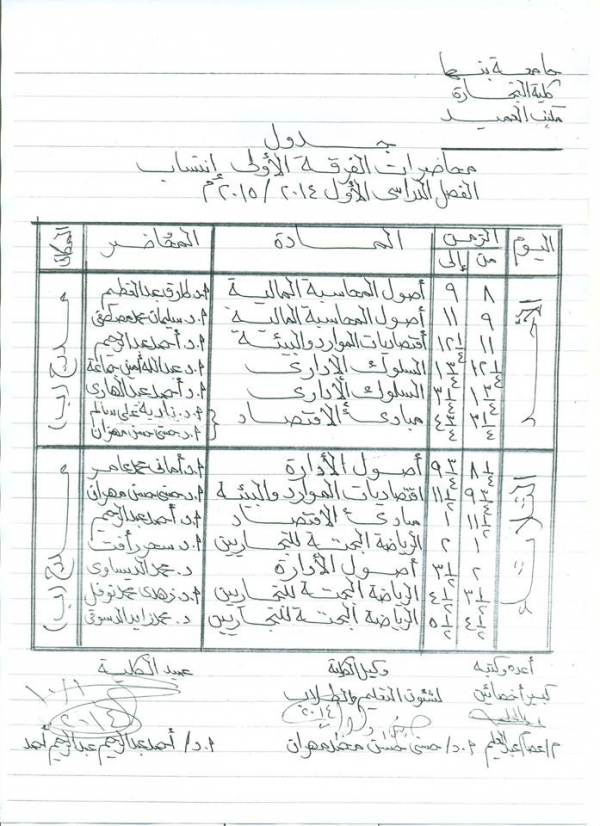 جامعة بنها
كلية التجارة
مكتب العميد
جدول
محاضرات الفرقة الأولى إنتساب
الفصل الدراسى الأول ٢٠١٤ / ٢٠١٥م
اليوم الزمن المادة المحاضر المكان
من إلى
٨ ٩ أصول المحاسبة المالية أ.د طارق عبدالعظيم
٩ ١١ أصول المحاسبة المالية أ.د. سلمان محمد مصطفى
١١ ١٢ ١/٤ أقتصاديات الموارد والبيئة أ.د. أحمد عبدالرحيم
١٢ ١/٤ ١ ٣/٤ السلوك الإدارى أ.د. عبدالله أمين جماعة
١ ٣/٤ ٣ ١/٤ السلوك الإدارى أ.د أحمد عبدالهادى
٣ ١/٤ ٤ ٣/٤ مبادئ الاقتصاد أ.د. نادية على سالم
أ.د حسنى حسن مهران
السبت مدرج (ب)
٨ ١/٤ ٩ ٣/٤ أصول الأدارة أ.د أمانى محمد عامر
٩ ٣/٤ ١١ ١/٢ اقتصاديات الموارد والبيئة أ.د. حسنى حسن مهران
١١ ١/٢ ١ مبادئ الاقتصاد أ.د أحمد عبدالرحيم
١ ٢ الرياضة البحتة للتجاريين أ.د سحر رأفت
٢ ٣ ١/٢ أصول الأدارة د. محمد الديساوى
٣ ١/٢ ٤ ١/٢ الرياضة البحتة للتجاريين أ.د زهدى محمد نوفل
٤ ١/٢ ٥ ١/٢ الرياضة البحتة للتجاريين د. محمد زايد الدسوقى
الثلاثاء مدرج (ب)
أعده وكتبه وكيل الكلية عميد الكلية
كبير أخصائين لشئون التعليم والطلاب
١٠/١
٢٠١٤
أ.د/ حسنى حسن محمد مهران أ.د/ أحمد عبدالرحيم عبدالرحيم أحمد